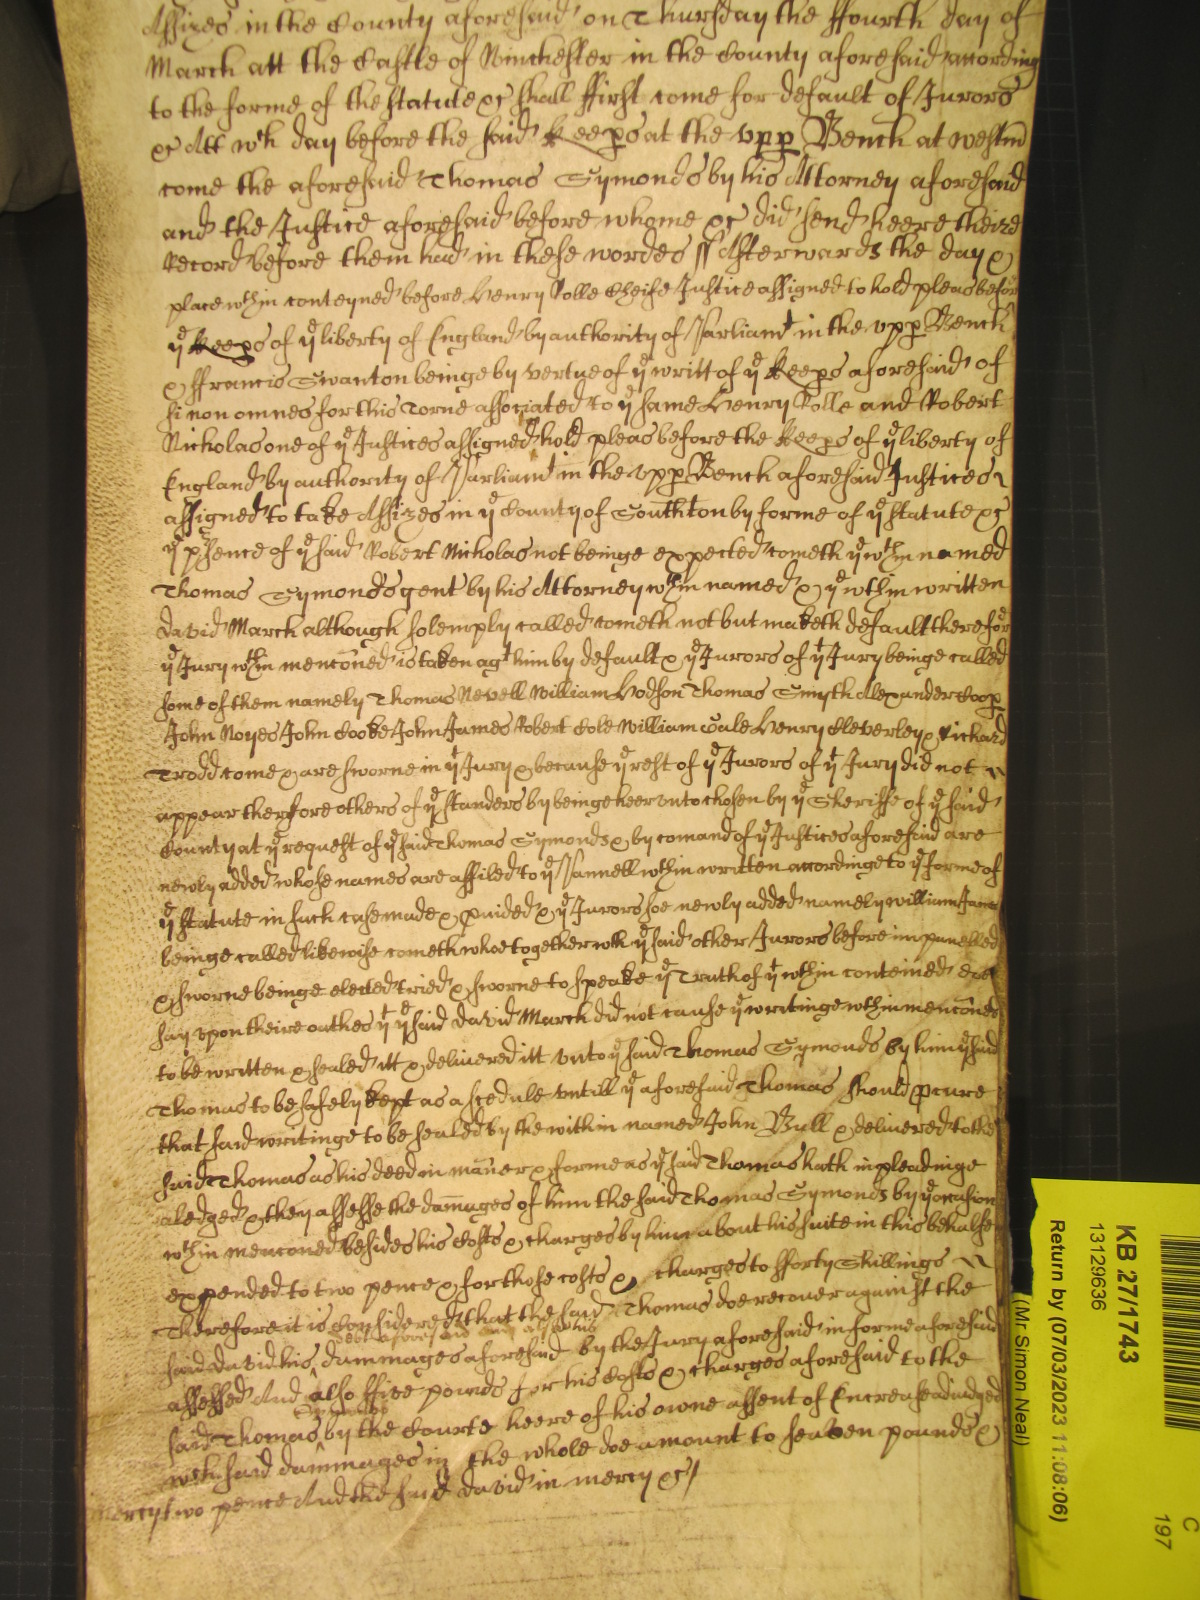 Assizes in the County aforesaid on Thursday the ffourth day of
March att the Castle of Winchester in the County aforesaid according
to the forme of the statute &c shall ffirst come for default of Jurors
&c Att wch day before the said Keeps at the vpp Bench at westm
come the aforesaid Thomas Symonds by his Attorney aforesaid
and the Justice aforesaid before whome &c did send heere theire
Record before them had in these wordes ss Afterwards the day &
place wthin conteyned before Henry Rolle Cheife Justice assigned to hold pleas before
ye Keeps of ye liberty of England by authority of Parliamt in the vpp Bench
& ffrancis Swanton beinge by vertue of ye writt of ye Keeps aforesaid of
si non omnes for this Torne associated to ye same Henry Rolle and Robert
Nicholas one of ye Justices assigned hold pleas before the Keeps of ye liberty of
England by authority of Parliamt in the vpp Bench aforesaid Justices
assigned to take Assizes in ye County of Southton by forme of ye statute &c
ye psence of ye said Robert Nicholas not beinge expected cometh ye wthin named
Thomas Symonds gent by his Attorney wthin named & ye wthin written
david March although solemply called cometh not but maketh default therefore
ye Jury wthin menconed is taken agt him by default & ye Jurors of yt Jury beinge called
some of them namely Thomas Nevell William Hodson Thomas Smyth Alexander Coop
John Noyes John Cooke John James Robert Cole William Cale Henry Cleverley & Richard
Trodd come & are sworne in yt Jury & because ye rest of ye Jurors of yt Jury did not
appear therfore others of ye standers by beinge heervnto chosen by ye Sheriffe of ye said
County at ye request of ye said Thomas Symonds & by comand of ye Justices aforesaid are
newly added whose names are affiled to ye Pannell wthin written accordinge to ye forme of
ye statute in such case made & pvided & ye Jurors soe newly added namely william Jame
beinge called likewise cometh whoe together wth ye said other Jurors before impanelled
& sworne beinge elected tried & sworne to speake ye Truth of yt wthin conteined doe
say vpon theire oathes yt ye said david March did not cause ye writinge wthin menconed
to be written & sealed itt & delivered itt vnto ye said Thomas Symonds by him ye said
Thomas to be safely kept as a scedule vntill ye aforesaid Thomas should pcure
that said writinge to be sealed by the within named John Bull & delivered to the
said Thomas as his deed in manner & forme as ye said Thomas hath in pleadinge
aledged & they assesse the damages of him the said Thomas Symonds by ye occasion
wthin menconed besides his Costs & charges by him about his suite in this behalfe
expended to two pence & for those costs & charges to fforty shillings
Therefore it is Considered that the said Thomas doe recover against the
debt aforesaid and also his
said david his dammages aforesaid by the Jury aforesaid in forme aforesaid
assessed And also ffive pounds for his Costs & charges aforesaid to the
Symonds
said Thomas by the Courte heere of his owne assent of Encrease adiudged
wch said dammages in the whole doe amount to seaven pounds &
two pence And the said david in mercy &c
mercy
KB 27/1743
13129636
Return by (07/03/2023 11:08:06)
(Mr Simon Neal)
C
197